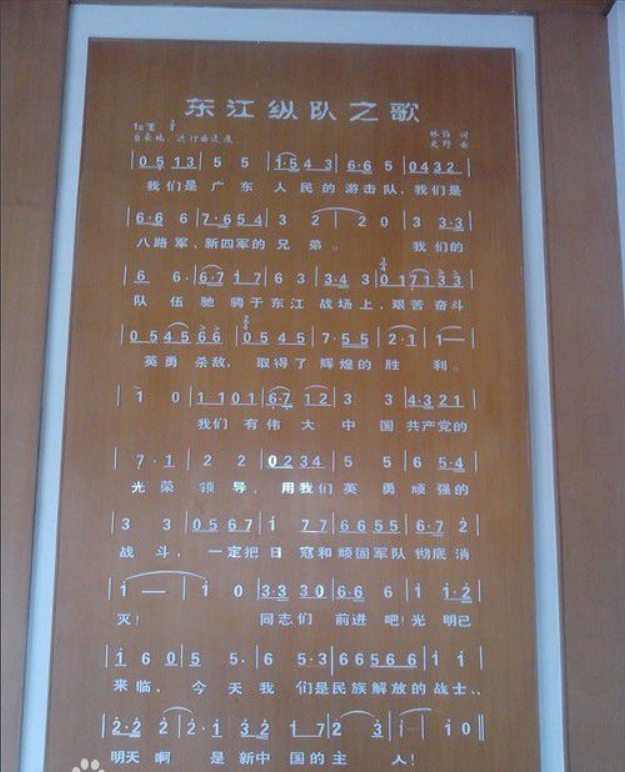 东江纵队之歌
1=♭E 2/4
林鹗 词
史野 曲
| 0 5 1 3 | 5 5 | 1·5 4 3 | 6·6 5 | 0 4 3 2 |
我们是 广 东 人 民 的 游 击 队, 我们是
| 6·6 6 | 7·6 5 4 | 3 2 | 2 0 | 3 3·3 |
八路军、新四军的 兄 弟。 我们的
| 6 6· | 6·7 1 7 | 6 3 | 3·4 3 | 3/4 0 1 7 1 3 3 |
队 伍 驰 骋于 东江 战场上, 艰苦 奋斗
| 0 5 4 5 6 6 | 2/4 0 5 4 5 | 7·5 5 | 2·1 | 1— |
英勇 杀敌, 取得了 辉煌的 胜 利。
| 1 0 | 1 1 0 1 | 6·7 1 2 | 3 3 | 4·3 2 1 |
我们 有 伟 大 中 国 共产党的
| 7·1 | 2 2 | 0 2 3 4 | 5 5 | 6 5·4 |
光 荣 领 导, 用我们 英 勇 顽强的
| 3 3 | 0 5 6 7 | 1 7 7 | 6 6 5 5 | 6·7 2 |
战 斗, 一定把 日 寇和 顽固军队 彻底 消
| 1 — | 1 0 | 3·3 3 0 | 6·6 6 | 1 1·2 |
灭! 同志们 前进 吧! 光 明已
| 1 6 0 | 5 5· | 6 5·3 | 6 6 5 6 6 | 1 1 |
来临, 今 天 我 们是 民族解放的 战士,
| 2·2 2 | 2·1 3 2 | 1 7 2 | 3 1 | 1 0 ‖
明天 啊 是 新中 国 的 主 人!